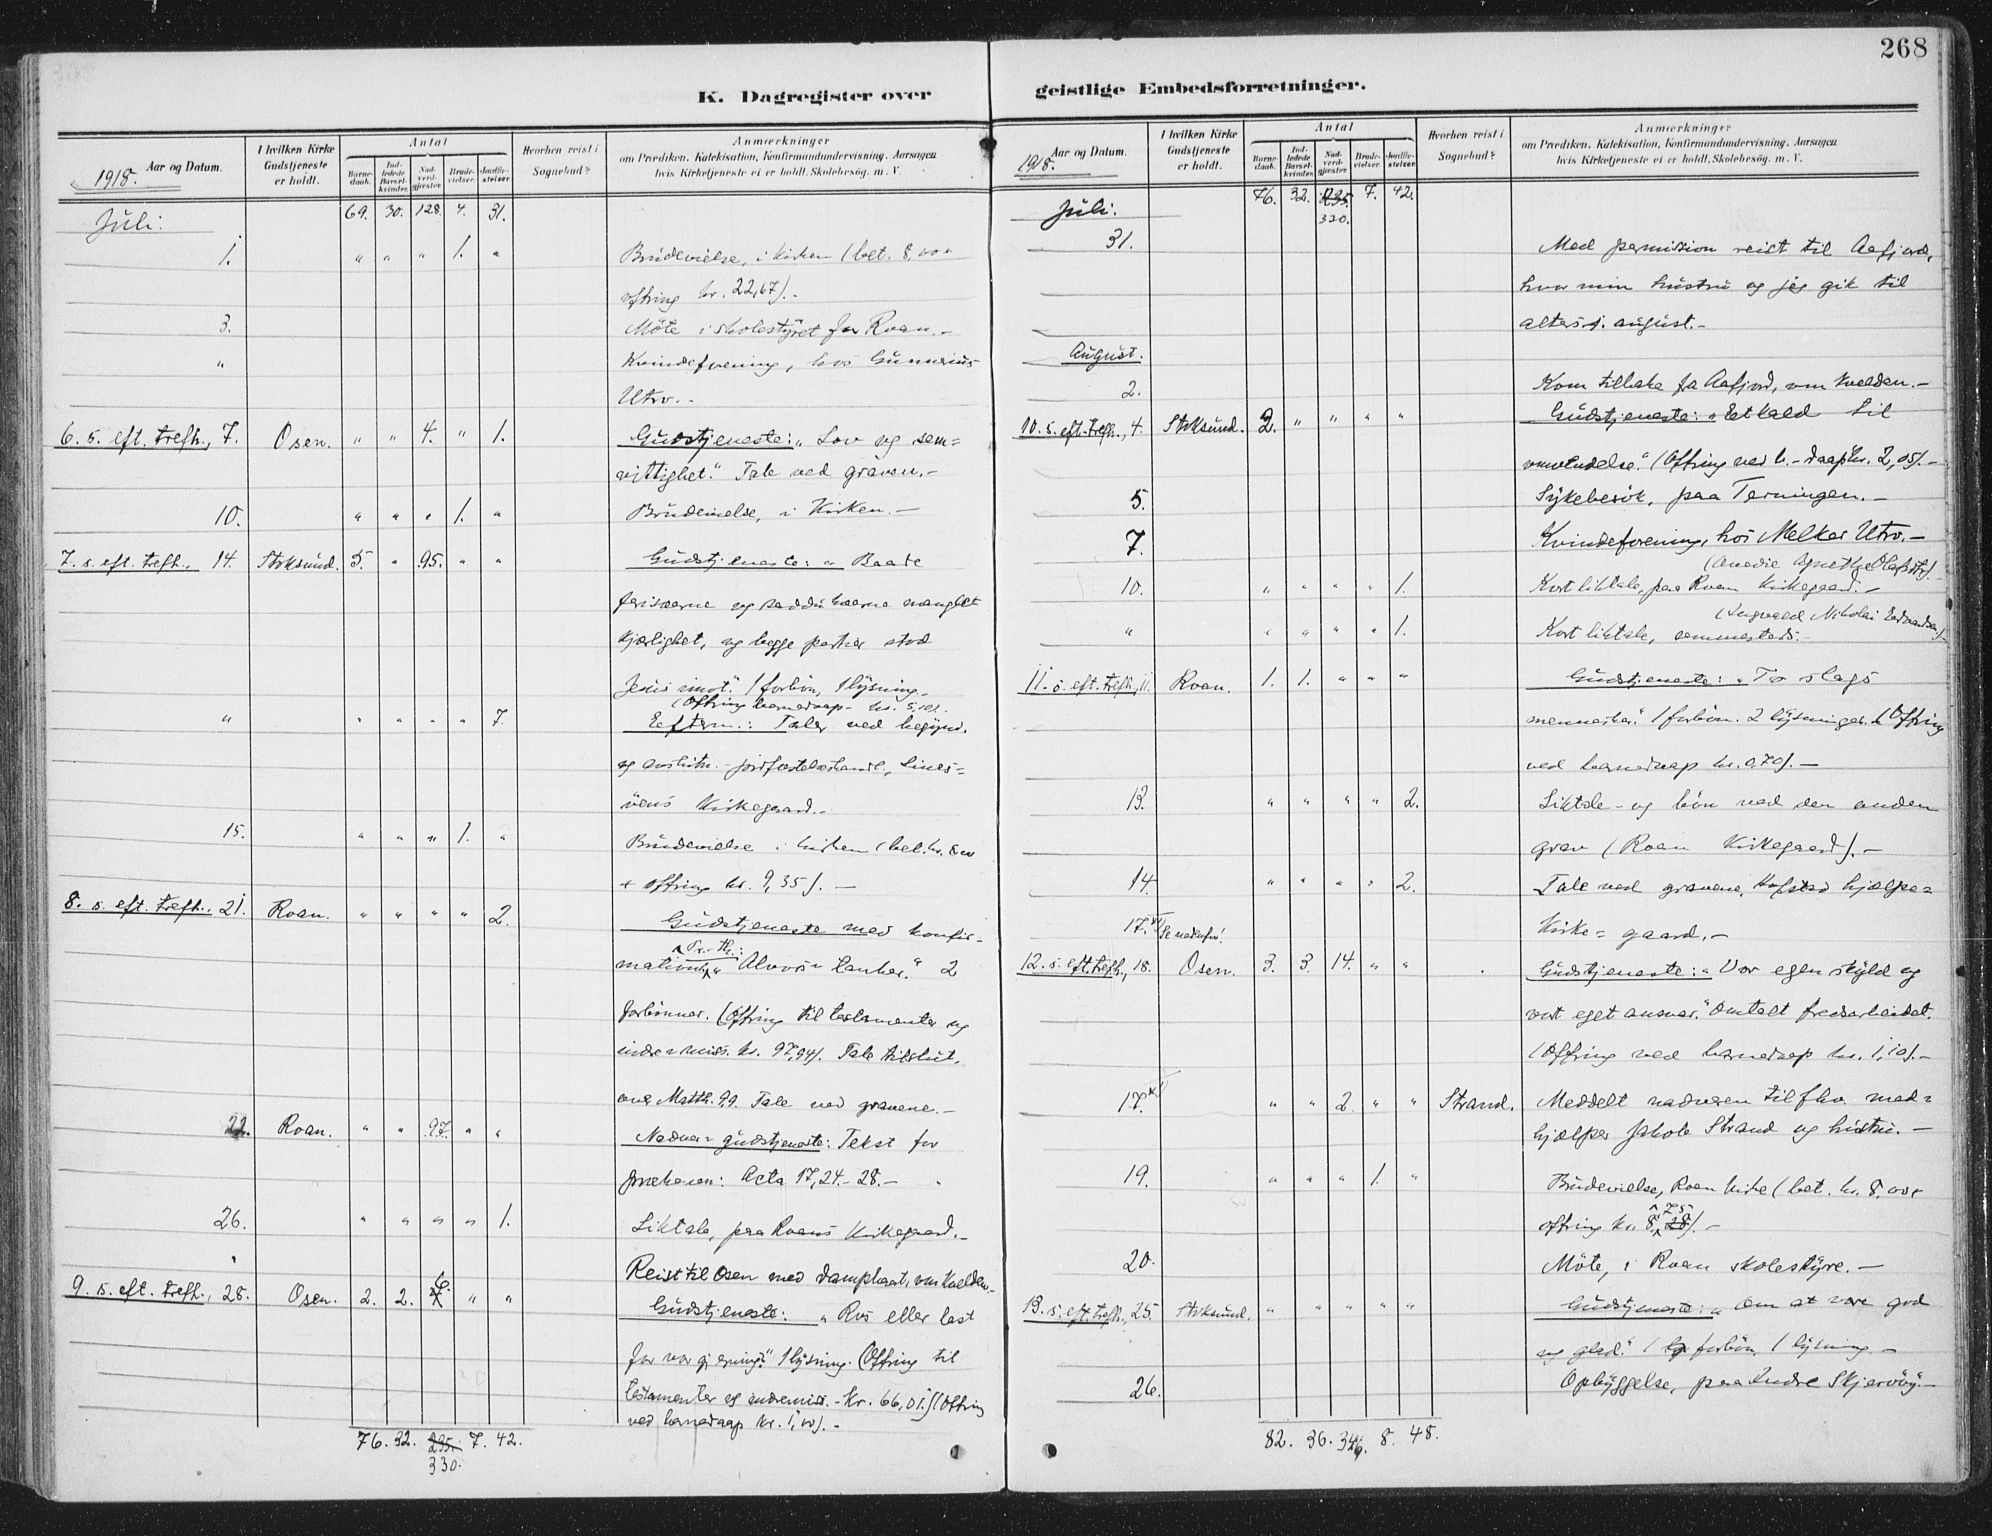 268
K. Dagregister over
geistlige Embedsforretninger.
1918. Aar og Datum.
I hvilken Kirke Gudstjeneste er holdt.
Antal
Barne-daab. Ind-ledede Barsel-kvinder. Nad-verd-gjæster. Brude-vielser. Jordfæ-stelser.
Hvorhen reist i Sognebud?
Anmærkninger
om Prædiken. Katekisation, Konfirmandundervisning. Aarsagen
hvis Kirketjeneste ei er holdt. Skolebesøg. m. V.
Juli. 69. 30. 128. 4. 31.
1. " " " 1. " Brudevielse, i kirken (bet. 8,00 +
ofring kr. 22,67).-
3. Möte i skolestyret for Roan.-
" Kvindeforening, hos Gunnerius
Utro.-
6. s. eft. trefh., 7. Osen. " " 4. " 1. Gudstjeneste: „Lov og sam=
vittighet." Tale ved graven.-
10. " " " 1. " Brudevielse, i Kirken.-
7. s. eft. trefh., 14. Stoksund. 5. " 95. " " Gudstjeneste: „Baade
fariseerne og saddukæerne manglet
kjærlighet, og begge partier stod
Jesus imot." 1 forbön, 1 lysning.-
(Ofring barnedaap kr. 5,10).
" " " " " 7. Efterm.: Taler ved begynd.
og avslutn. - jordfæstelseshandl., Lines=
öens Kirkegaard.-
15. " " " 1. " Brudevielse i kirken (bet. kr. 8,00
+ ofring kr. 9,35).-
8. s. eft. trefh., 21. Roan. " " " " 2. Gudstjeneste med konfir-
mation: „Alvors-tanker." 2
forbönner. (Ofring til testamenter og
indremiss. kr. 97,94). Tale tilslut,
over Matth. 9,9. Tale ved gravene.-
22. Roan. " " 97. " " Nadver-gudstjeneste: Tekst for
præken: Acta 17,24.-28.-
26. " " " " 1. Liktale, paa Roans Kirkegaard.-
" Reist til Osen med dampbaat, om kvelden.-
9. s. eft. trefh., 28. Osen. 2. 2. 6. " " Gudstjeneste: „Ros eller last
for vor gjerning." 1 lysning. (Ofring til
testamenter og indremiss. - kr. 66,01.) (Ofring
ved barnedaap kr. 1,00).-
76. 32. 235. 7. 42.
330.
1918. Aar og Datum.
I hvilken Kirke Gudstjeneste er holdt.
Antal
Barne-daab. Ind-ledede Barsel-kvinder. Nad-verd-gjæster. Brude-vielser. Jordfæ-stelser.
Hvorhen reist i Sognebud?
Anmærkninger
om Prædiken. Katekisation, Konfirmandundervisning. Aarsagen
hvis Kirketjeneste ei er holdt. Skolebesøg. m. V.
Juli. 76. 32. 235. 7. 42.
330.
31. Med permission reist til Aafjord,
hvor min hustru og jeg gik til
alters 1. august.-
August.
2. Kom tilbake fra Aafjord, om kvelden.-
10. s. eft. trefh., 4. Stoksund. 2. " " " " Gudstjeneste: „Et kald til
omvendelse." (Ofring ved b.-daap kr. 2,05).-
5. Sykebesök, paa Terningen.-
7. Kvindeforening, hos Melker Utro.-
(Anedie Agnethe Olafsdtr).
10. " " " " 1. Kort liktale, paa Roan Kirkegaard.-
(Ingvald Nikolai Edvardsen).
" " " " " 1. Kort liktale, sammesteds.-
11. s. eft. trefh., 11. Roan. 1. 1. " " " Gudstjeneste: „To slags
mennesker." 1 forbön. 2 lysninger. (Ofring
ved barnedaap kr. 0,70).-
13. " " " " 2. Liktale- og bön ved den anden
grav (Roan Kirkegaard).-
14. " " " " 2. Tale ved gravene, Hofstad hjælpe=
Kirke=gaard.-
17. x) Se nedenfor!
12. s. eft. trefh., 18. Osen. 3. 3. 14. " " Gudstjeneste: „Vor egen skyld og
vort eget ansvar." Omtalt fredsarbeidet.
(Ofring ved barnedaap kr. 1,10).-
17. x) " " 2 " " Strand. Meddelt nadveren til fhv. med=
hjælper Jakob Strand og hustru.-
19. " " " 1. " Brudevielse, Roan kirke (bet. kr. 8,00 +
ofring kr. 8, 28 75).-
20. Möte, i Roan skolestyre.-
13. s. eft. trefh., 25. Stoksund. " " " " " Gudstjeneste: „Om at være god
og glad." 1 forbön, 1 lysning.-
26. Opbyggelse, paa Indre Skjervöy.-
82. 36. 346. 8. 48.